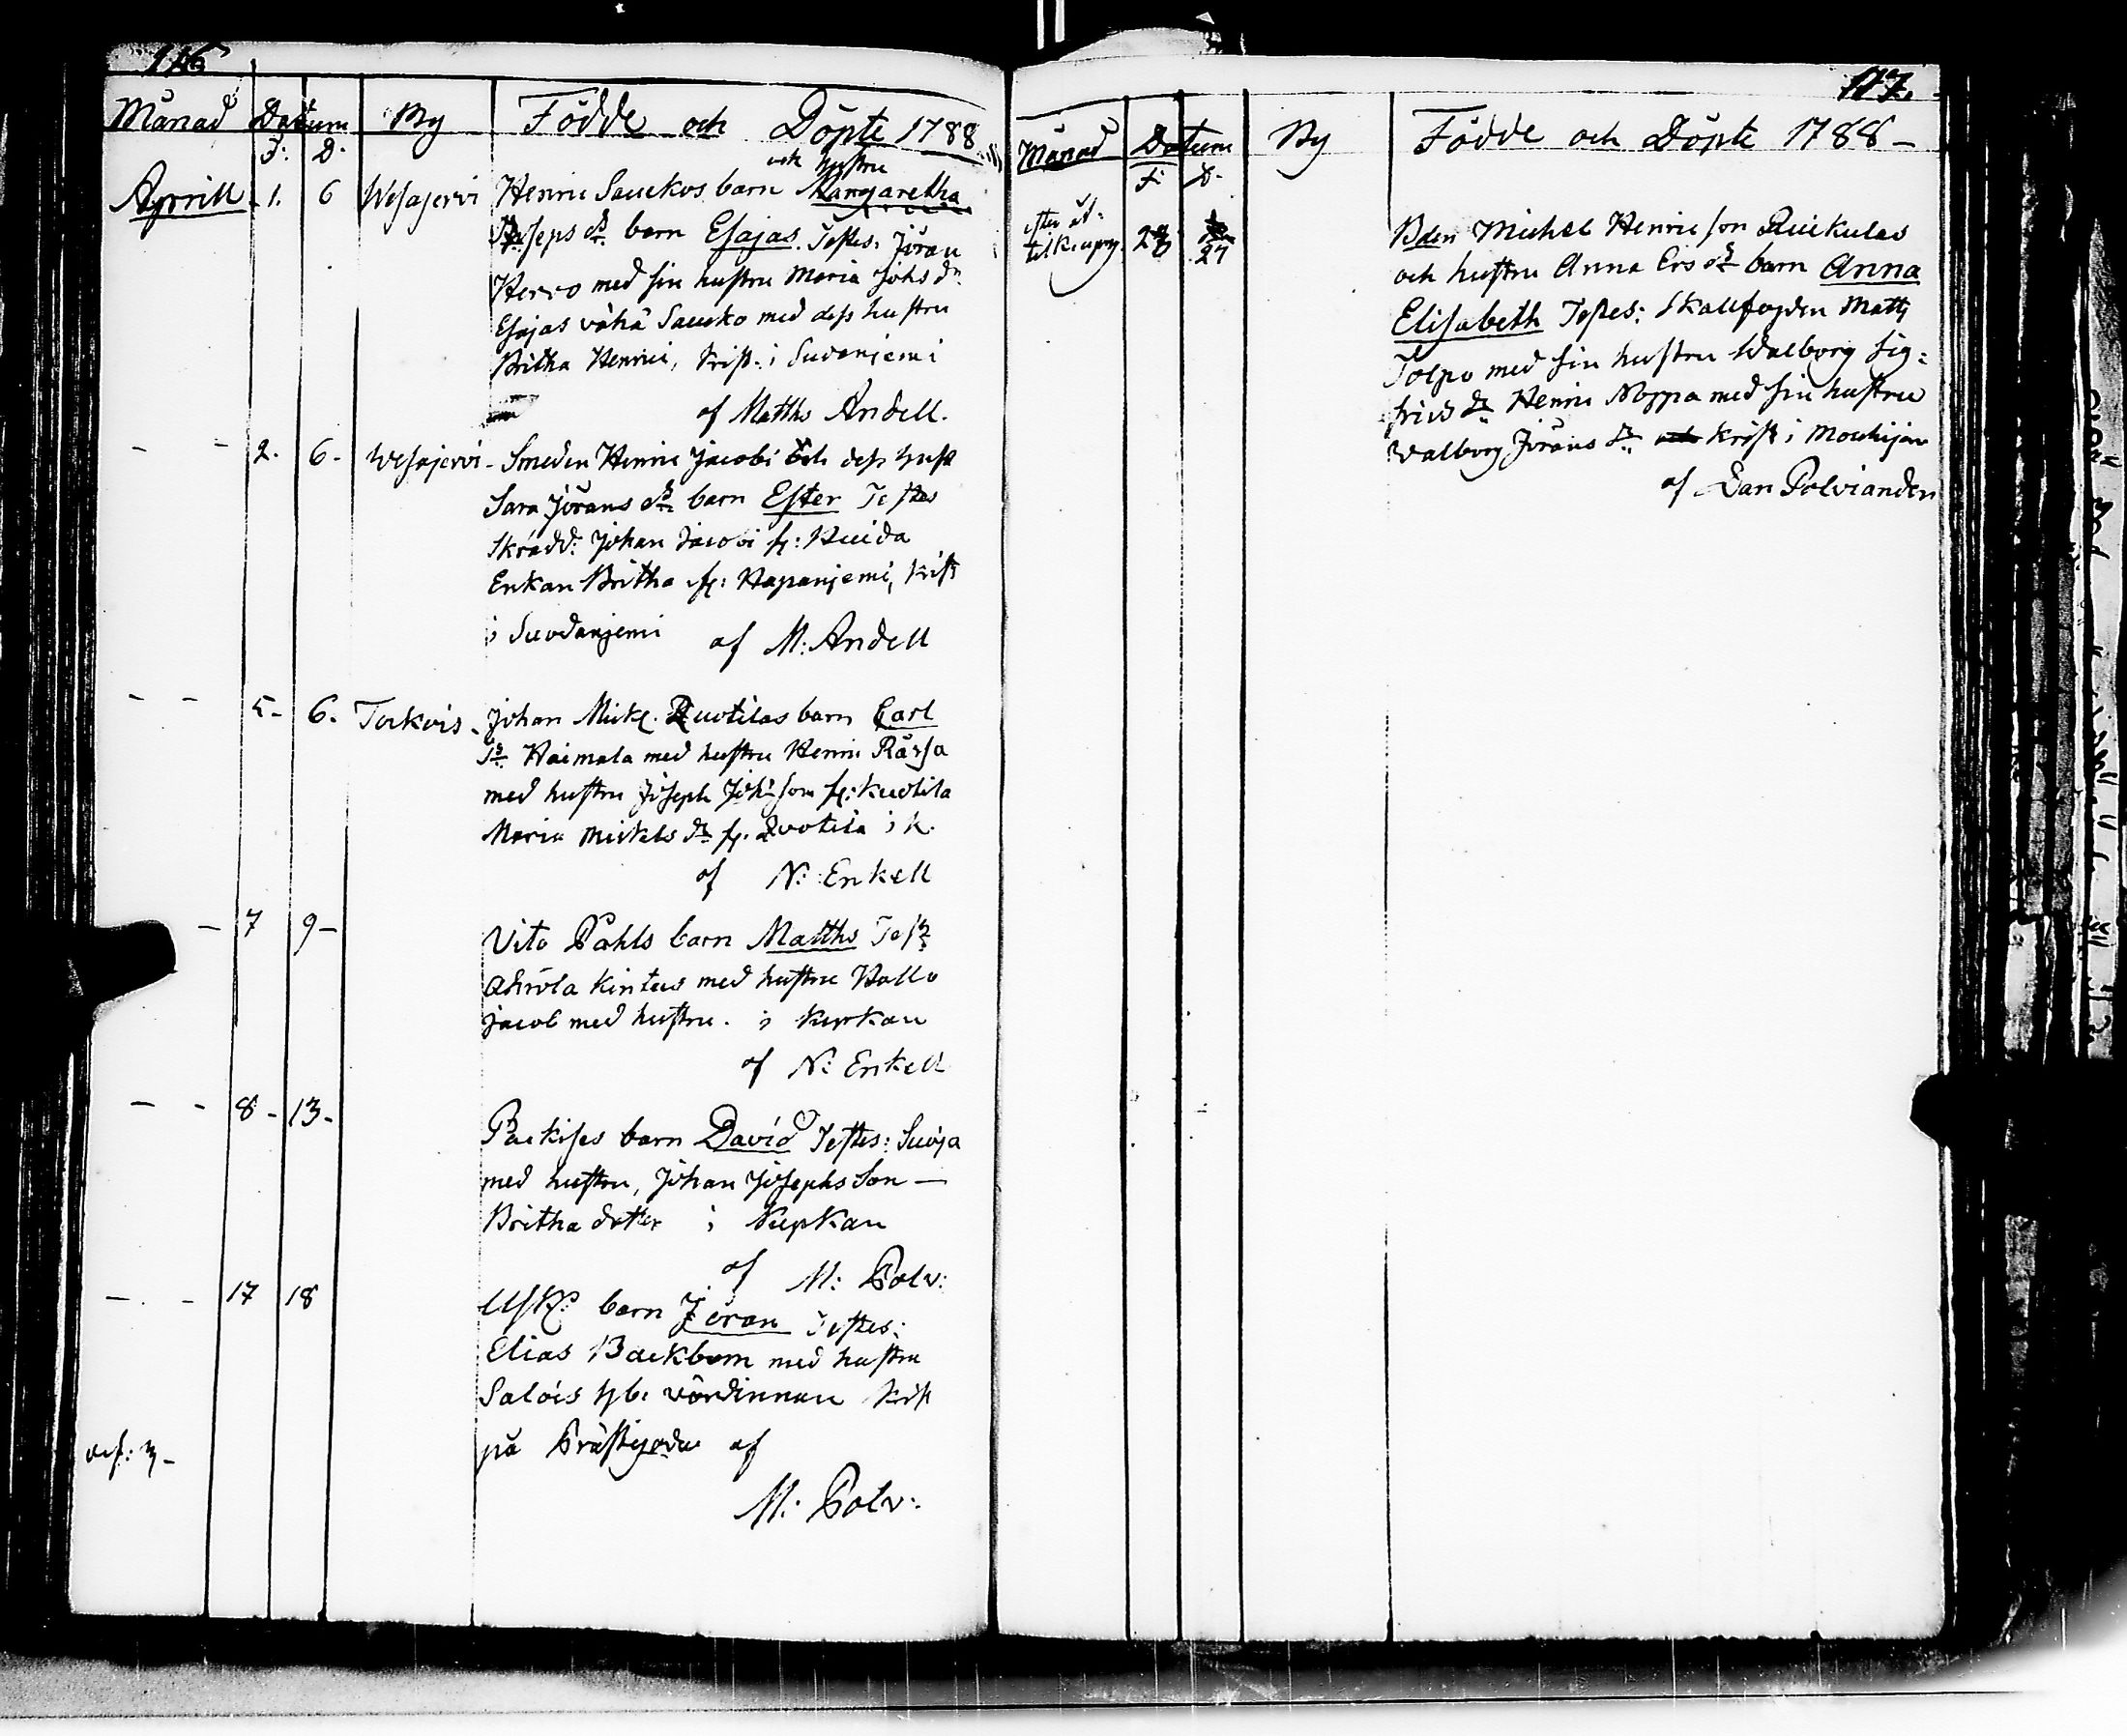 116
Månad Datum By Födde och Döpte 1788
F: D.
och hustru
Aprill 1. 6 Wesajervi Henric Saukos barn Margaretha
Josephs dr barn Esajas. Testes: Jöran
Herro med sin hustru Maria Johs dr
Esajas vähä Saucko med dess hustru
Britha Henrici, Krist. i Suodanjemi
af Matths Andell.
- - 2. 6- Wesajervi- Smeden Henric Jacobi och dess hust
Sara Jörans dr barn Ester Testes
Skrädd: Johan Jacobi fr: Huida
Enkan Britha fr: Hapanjemi, Krist
i Suodanjemi af M: Andell
- - 5- 6. Torkois- Johan Mick. Ruotilas barn Carl
Ts. Haimala med hustru Henric Räisa
med hustru Joseph Joh. son fr: Ruotila
Maria Mickels dr fr. Ruotila i K.
af N: Enkell
- 7 9- Vito Pahls barn Matths Test
Ahrola Kintus med hustru Hallo
Jacob med hustru. i Kyrkan
af N: Enkell
- - 8- 13- Packises barn David Testes: Suoja
med hustru, Johan Josephs Son —
Britha dotter i Kyrkan
af M: Polv:
- - 17 18 barn Jöran Testes:
Elias Backbom med hustru
Salois vördinnan Krist
på Prästgodu af
M: Polv:
117.
Månad Datum By Födde och Döpte 1788 —
F: D.
28 27 Bden Michel Henricson Ruikulas
och hustru Anna Ers dr barn Anna
Elisabeth Testes: Skallfogden Matts
Tolpo med sin hustru Walborg Sig:
frids dr Henric Noppa med sin hustru
Walborg Jörans dr och Krist i Mouhijärv
af Dan Polviander